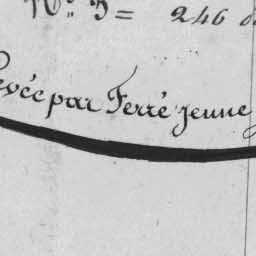 N.º 3 = 246
par Ferré jeune